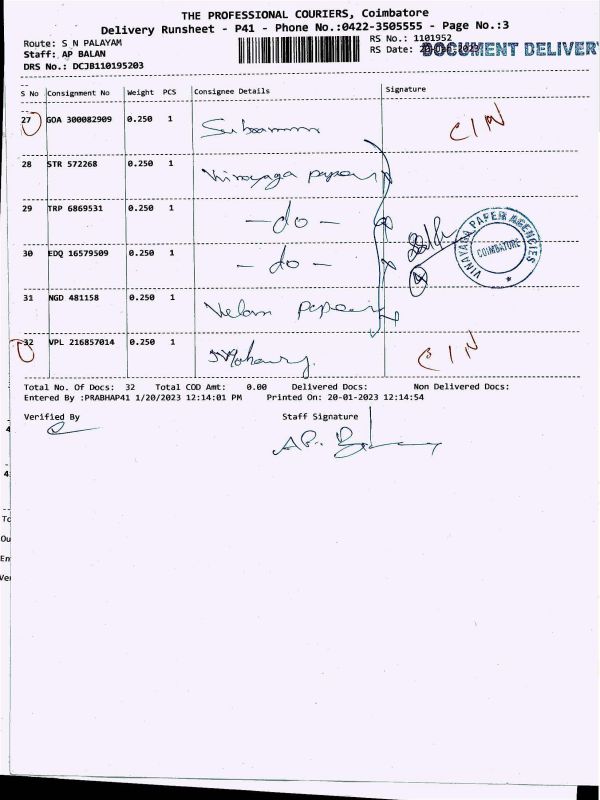 THE PROFESSIONAL COURIERS, Coimbatore
Delivery Runsheet - P41 - Phone No.:0422-3505555 - Page No.:3
Route: S N PALAYAM
RS No.: 1101952
Staff: AP BALAN
RS Date:
DOCUMENT DELIVER
DRS No.: DCJB110195203
S No Consignment No Weight PCS Consignee Details Signature
27 GOA 300082909 0.250 1 CIN
28 STR 572268 0.250 1 Vinayaga papers
29 TRP 6869531 0.250 1 - do -
30 EDQ 16579509 0.250 1 - do -
31 NGD 481158 0.250 1 Velan papers
32 VPL 216857014 0.250 1 CIN
4
VINAYAGA PAPER AGENCIES
COIMBATORE
Total No. Of Docs: 32 Total COD Amt: 0.00 Delivered Docs: Non Delivered Docs:
Entered By :PRABHAP41 1/20/2023 12:14:01 PM Printed On: 20-01-2023 12:14:54
Verified By Staff Signature